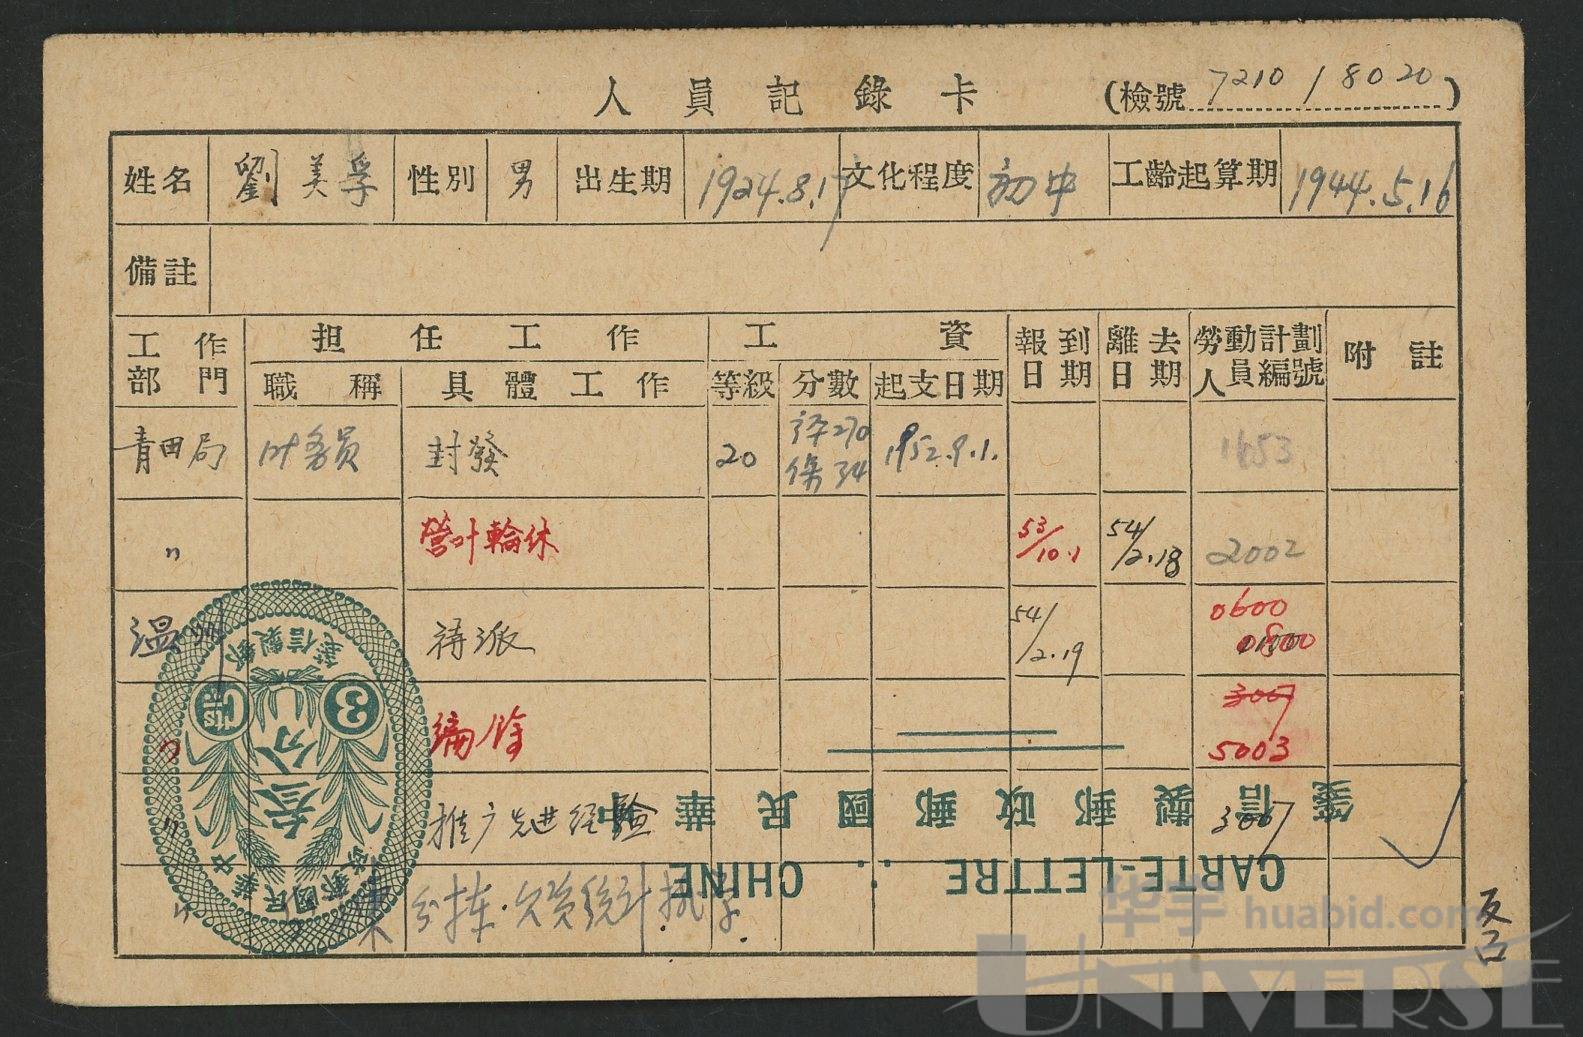 人員記錄卡
(檢號 7210/8020)
姓名 劉美孚 性別 男 出生期 1924.8.17 文化程度 初中 工齡起算期 1944.5.16
備註
工作部門 担任工作 工資 報到日期 離去日期 勞動計劃人員編號 附註
職稱 具體工作 等級 分數 起支日期
青田局 叶务員 封發 20 评270 保34 1952.9.1. 1653
〃 營叶輪休 53/10.1 54/2.18 2002
溫 待派 54/2.19 0600
0800
〃 編餘 3067
5003
〃 推广先进经验 3067
〃 分拣·欠资统计
中華民國郵政郵製信箋
CARTE-LETTRE : CHINE
中華民國郵政
郵製信箋
叁分
3
Cts
反凸
华宇 huabid.com
UNIVERSE